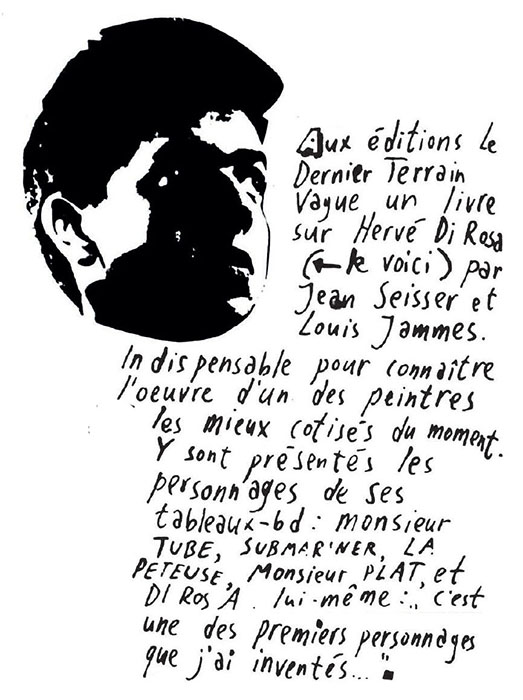 Aux éditions le
Dernier Terrain
Vague un livre
sur Hervé Di Rosa
(← le voici) par
Jean Seisser et
Louis Jammes.
Indispensable pour connaître
l'oeuvre d'un des peintres
les mieux cotisés du moment.
Y sont présentés les
personnages de ses
tableaux-bd : monsieur
TUBE, SUBMARINER, LA
PETEUSE, Monsieur PLAT, et
DI ROSA lui-même : „ c'est
une des premiers personnages
que j'ai inventés... ".